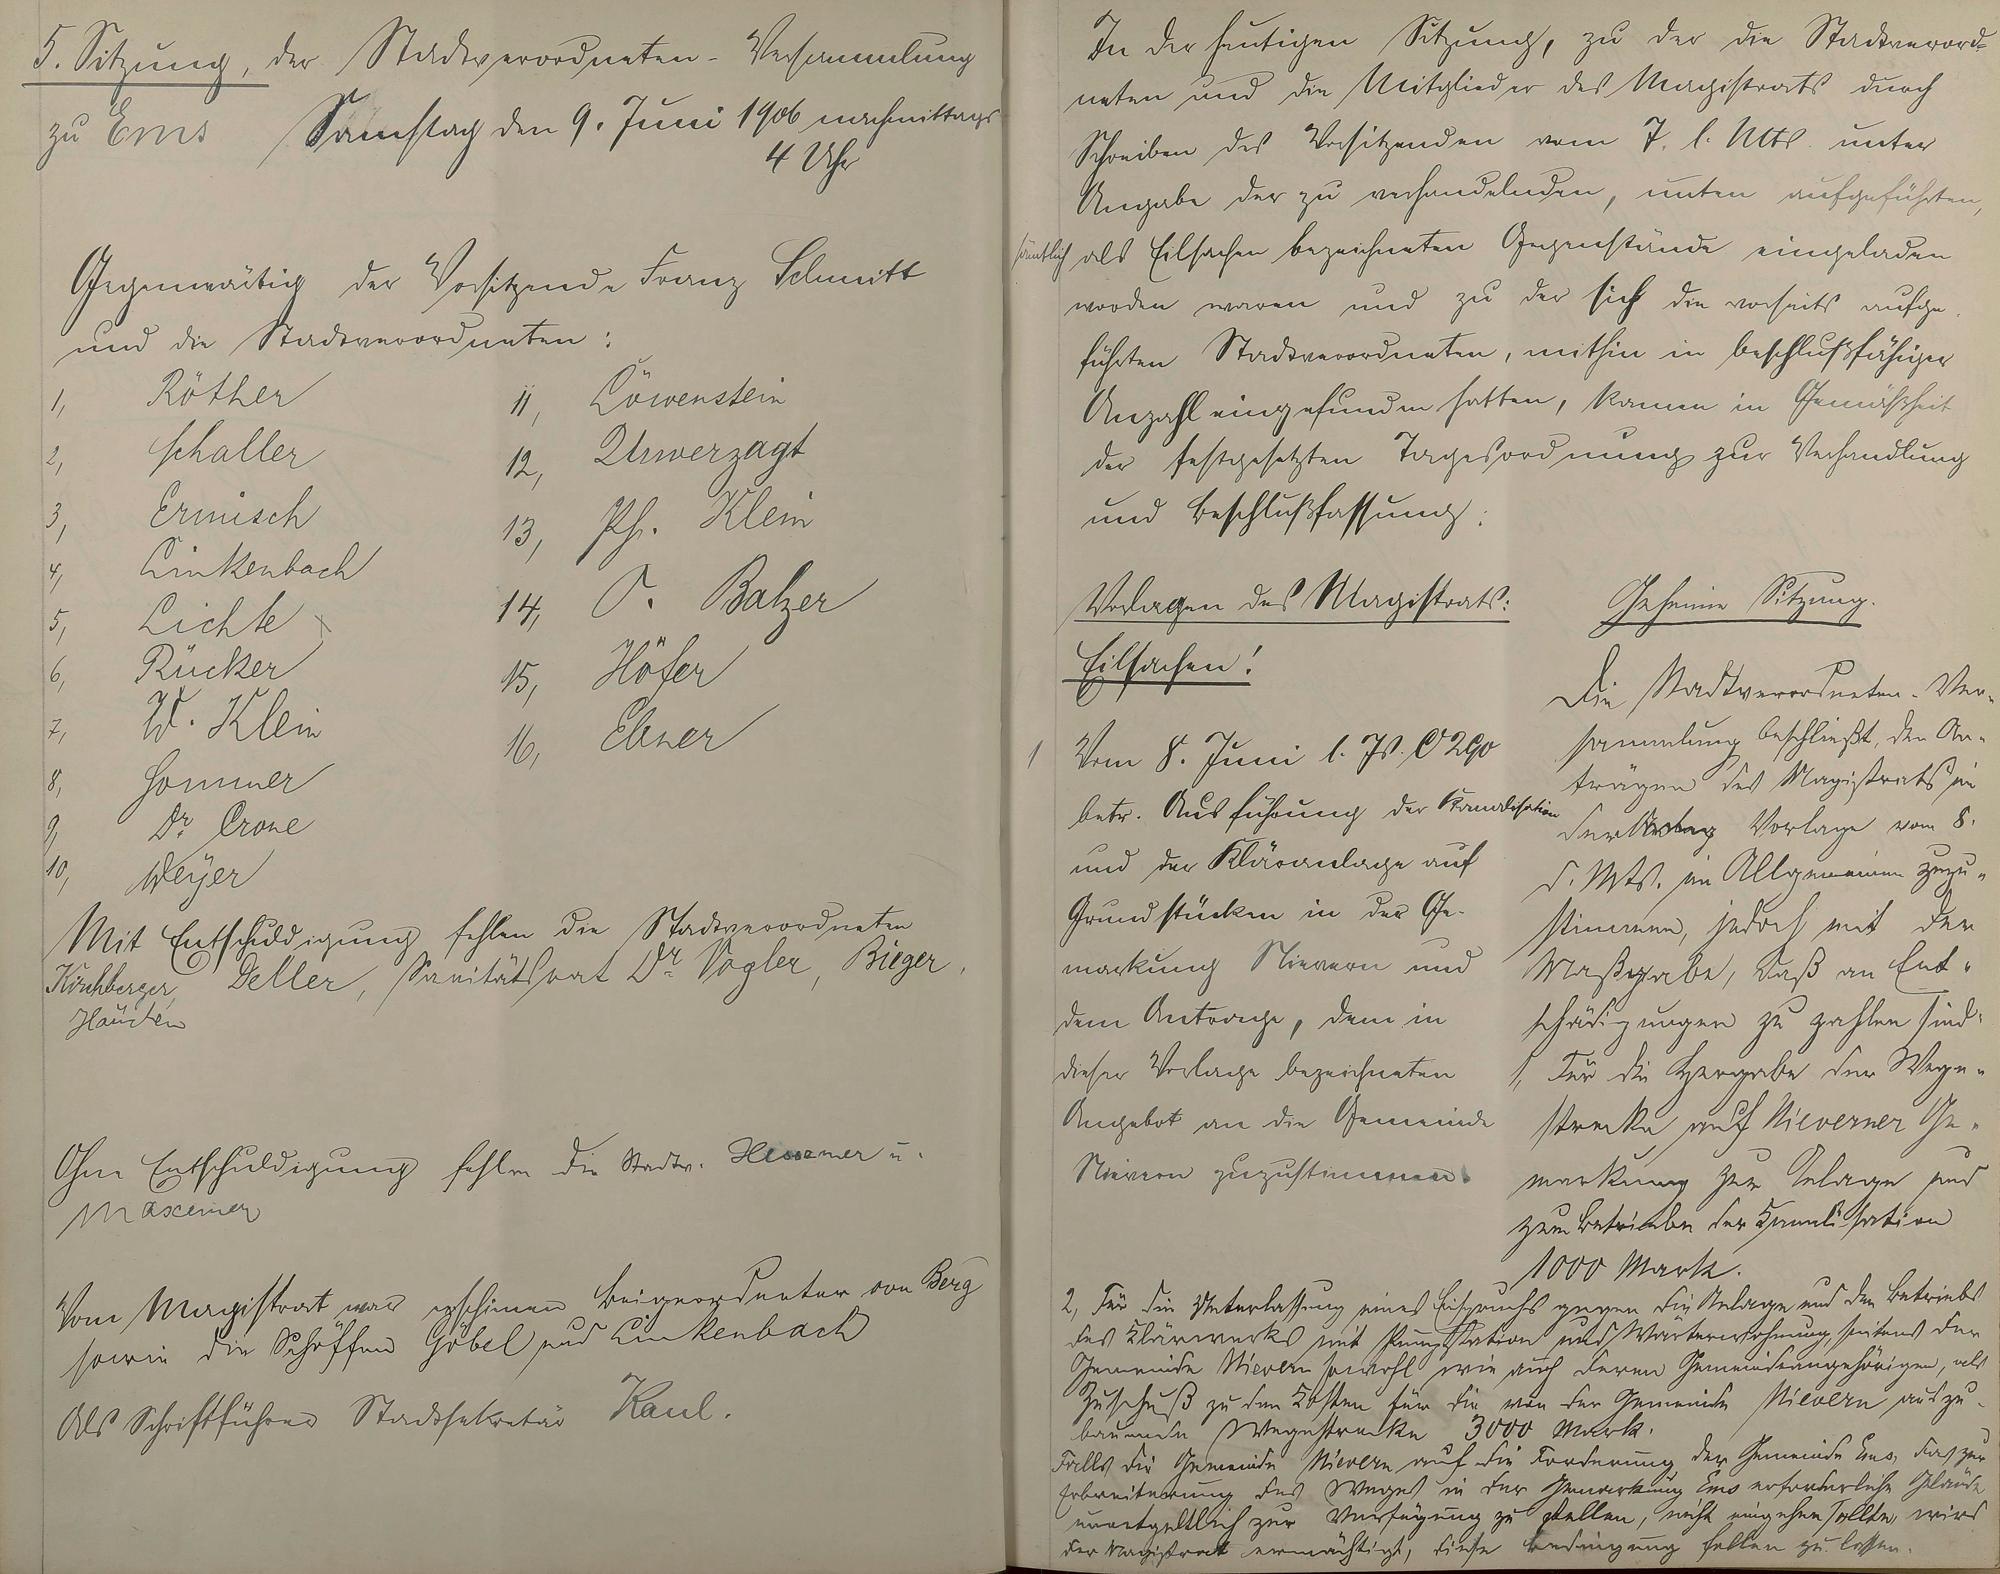 5. Sitzung, der Stadtverordneten-Versammlung
zu Ems Samstag den 9. Juni 1906 nachmittags
4 Uhr
Gegenwärtig der Vorsitzende Franz Schmitt
und die Stadtverordneten:
1, Röther
2, Schaller
3, Ermisch
4, Linkenbach
5, Lichte
6, Rücker
7, W. Klein
8, Sommer
9, Dr. Crone
10, Weyer
11, Löwenstein
12, Unverzagt
13, Ph. Klein
14, O. Balzer
15, Höfer
16, Ebner
Mit Entschuldigung fehlen die Stadtverordneten
Kirchberger, Deller, Sanitätsrat Dr. Vogler, Bieger,
Ohne Entschuldigung fehlen die Stadtv. Hessemer u.
Maxeiner
Vom Magistrat war erschienen Beigeordneter von Berg
sowie die Schöffen Göbel und Linkenbach
Als Schriftführer Stadtsekretär Kaul.
In der heutigen Sitzung, zu der die Stadtverord-
neten und die Mitglieder des Magistrats durch
Schreiben des Vorsitzenden vom 7. l. Mts. unter
Angabe der zu verhandelnden, unten aufgeführten,
sämtlich als Eilsachen bezeichneten Gegenstände eingeladen
worden waren und zu der sich die vorseits aufge-
führten Stadtverordneten, mithin in beschlußfähiger
Anzahl eingefunden hatten, kamen in Gemäßheit
der festgesetzten Tagesordnung zur Verhandlung
und Beschlußfassung:
Vorlagen des Magistrats:
Eilsachen!
1 Vom 8. Juni l. Js. C 290
betr. Ausführung der Kanalisation
und der Kläranlage auf
Grundstücken in der Ge-
markung Nievern und
dem Antrage, dem in
dieser Vorlage bezeichneten
Angebot an die Gemeinde
Nievern zuzustimmen.
Geheime Sitzung.
Die Stadtverordneten-Ver-
sammlung beschließt, den An-
trägen des Magistrats in
der Vorlage vom 8.
d. Mts. im Allgemeinen zuzu-
stimmen, jedoch mit der
Maßgabe, daß an Ent-
schädigungen zu zahlen sind:
1, Für die Hergabe der Wege-
strecke auf Nieverner Ge-
markung zur Anlage und
zum Betriebe der Kanalisation
1000 Mark.
2, Für die Unterlassung eines Einspruchs gegen die Anlage und den Betriebs
des Klärwerks mit Pumpstation und Wärterwohnung, seitens der
Gemeinde Nievern sowohl wie auch deren Gemeindeangehörigen, als
Zuschuß zu den Kosten für die von der Gemeinde Nievern auszu-
bauende Wegestrecke 3000 Mark.
Falls die Gemeinde Nievern auf die Forderung der Gemeinde Ems, das zur
Erbreiterung des Weges in der Gemarkung Ems erforderliche Gelände
unentgeltlich zur Verfügung zu stellen, nicht eingehen sollte, wird
der Magistrat ermächtigt, diese Bedingung fallen zu lassen.